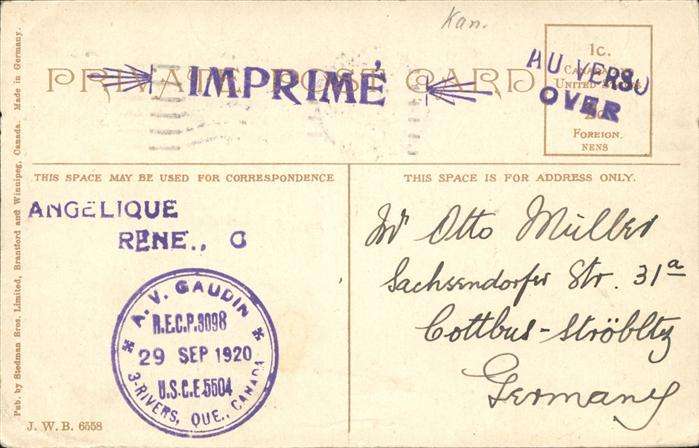 Kan.
PRIVATE POST CARD
IMPRIMÉ
1c.
AU VERSO
OVER
FOREIGN.
THIS SPACE MAY BE USED FOR CORRESPONDENCE
THIS SPACE IS FOR ADDRESS ONLY.
ANGELIQUE
RENE., G
A. V. GAUDIN
R.E.C.P.3098
29 SEP 1920
U.S.C.E.5504
3-RIVERS, QUE., CANADA
Otto Müller
Sachsendorfer Str. 31a
Cottbus-Ströbitz
Germany
Pub. by Stedman Bros. Limited, Brantford and Winnipeg, Canada. Made in Germany.
J. W. B. 6558